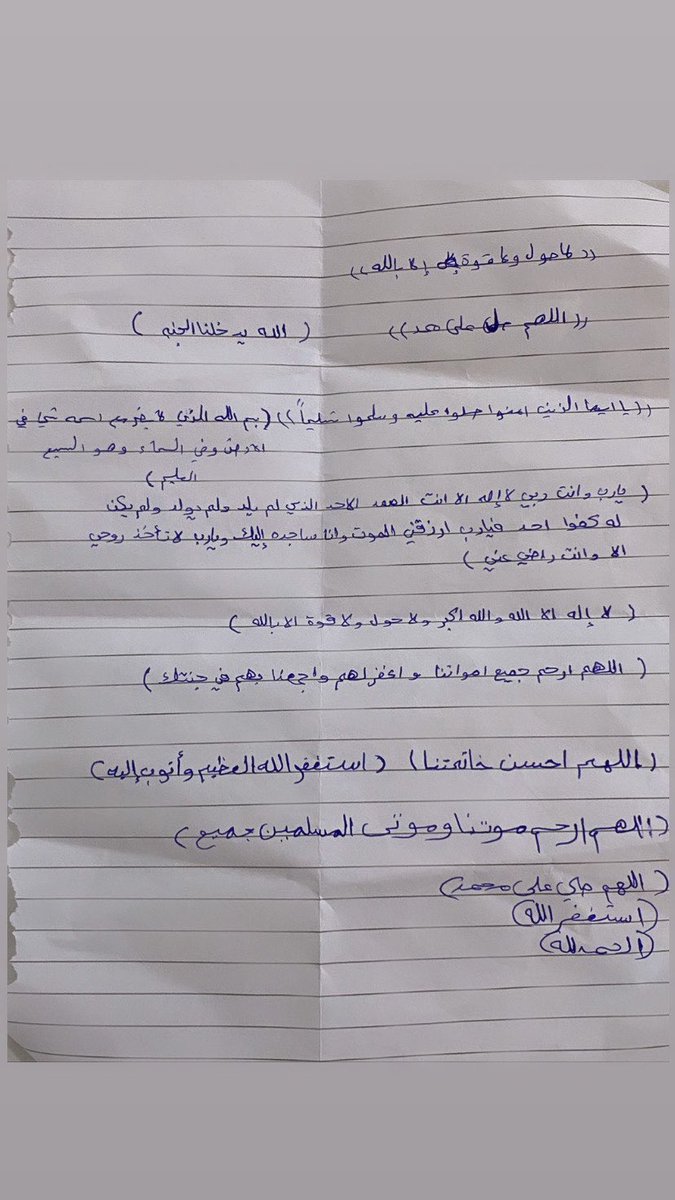 ((لاحول ولا قوة إلا بالله))
((اللهم صل على محمد)) (الله يدخلنا الجنه)
((يا ايها الذين امنوا صلوا عليه وسلموا تسليماً)) (بسم الله الذي لا يضر مع اسمه شي في
الارض وفي السماء وهو السميع
العليم)
(يارب وانت ربي لا إله الا انت الصمد الاحد الذي لم يلد ولم يولد ولم يكن
له كفوا احد فيارب ارزقني الموت وانا ساجده إليك ويارب لا تأخذ روحي
الا وانت راضي عني)
(لا إله الا الله والله اكبر ولا حول ولا قوة الا بالله)
(اللهم ارحم جميع امواتنا واغفر لهم واجمعنا بهم في جنتك)
(اللهم احسن خاتمتنا) (استغفر الله العظيم وأتوب إليه)
(اللهم ارحم موتنا وموتى المسلمين جميع)
(اللهم صلي على محمد)
(استغفر الله)
(الحمدلله)